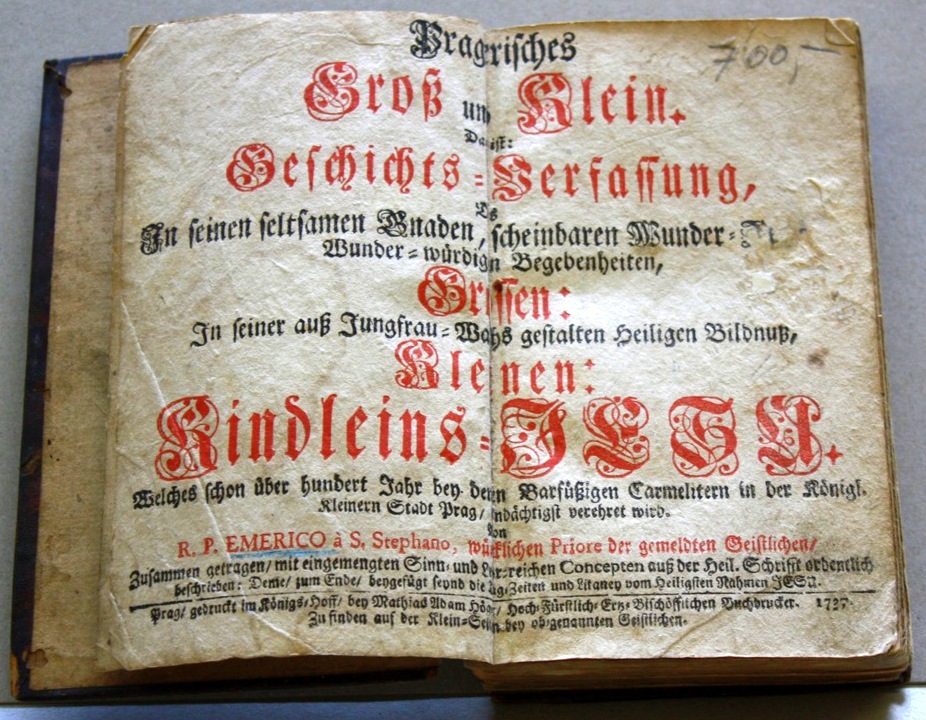 Pragerisches
700,-
Groß und Klein.
Das ist:
Geschichts-Verfassung,
Des
In seinen seltsamen Gnaden, scheinbaren Wunder-
Wunder-würdigen Begebenheiten,
Grossen:
In seiner auß Jungfrau-Wachs gestalten Heiligen Bildnuß,
Kleinen:
Kindleins-JESU.
Welches schon über hundert Jahr bey denen Barfüßigen Carmelitern in der Königl.
Kleinern Stadt Prag/ andächtigst verehret wird.
Von
R. P. EMERICO à S. Stephano, würcklichen Priore der gemeldten Geistlichen/
Zusammen getragen/ mit eingemengten Sinn- und Lehr-reichen Concepten auß der Heil. Schrifft ordentlich
beschrieben: Deme/ zum Ende/ beygefügt seynd die Tag-Zeiten und Litaney vom Heiligsten Nahmen JESU.
Prag/ gedruckt im Königs-Hoff/ bey Mathias Adam Höger/ Hoch-Fürstlich-Ertz-Bischöfflichen Buchdrucker. 1737.
Zu finden auf der Klein-Seiten bey ob-genannten Geistlichen.